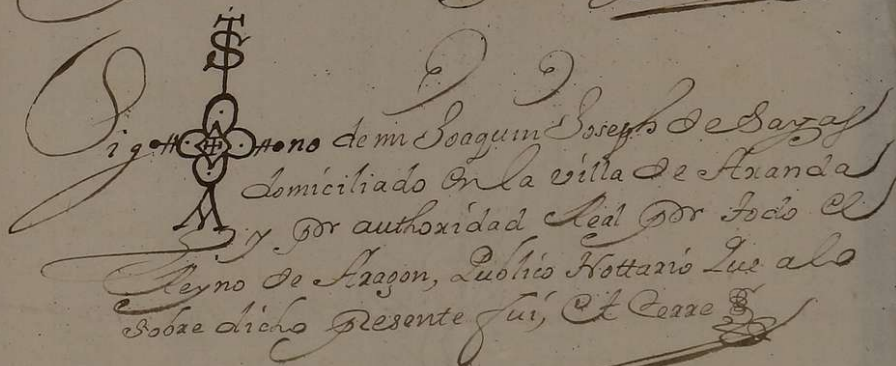 Sig no de mi Joaquin Joseph de Sayas
domiciliado en la villa de Aranda
y por authoridad Real por todo el
Reyno de Aragon, Publico Nottario que a lo
sobre dicho presente fui, et cerre